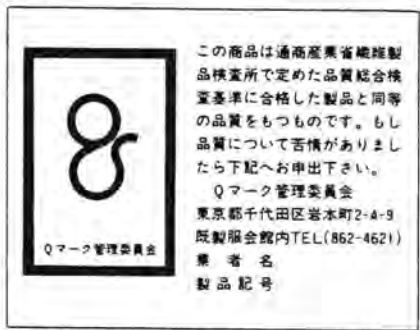 この商品は通商産業省繊維製
品検査所で定めた品質総合検
査基準に合格した製品と同等
の品質をもつものです。もし
品質について苦情がありまし
たら下記へお申出下さい。
Qマーク管理委員会
東京都千代田区岩本町2-4-9
既製服会館内TEL(862-4621)
業者名
製品記号
Qマーク管理委員会